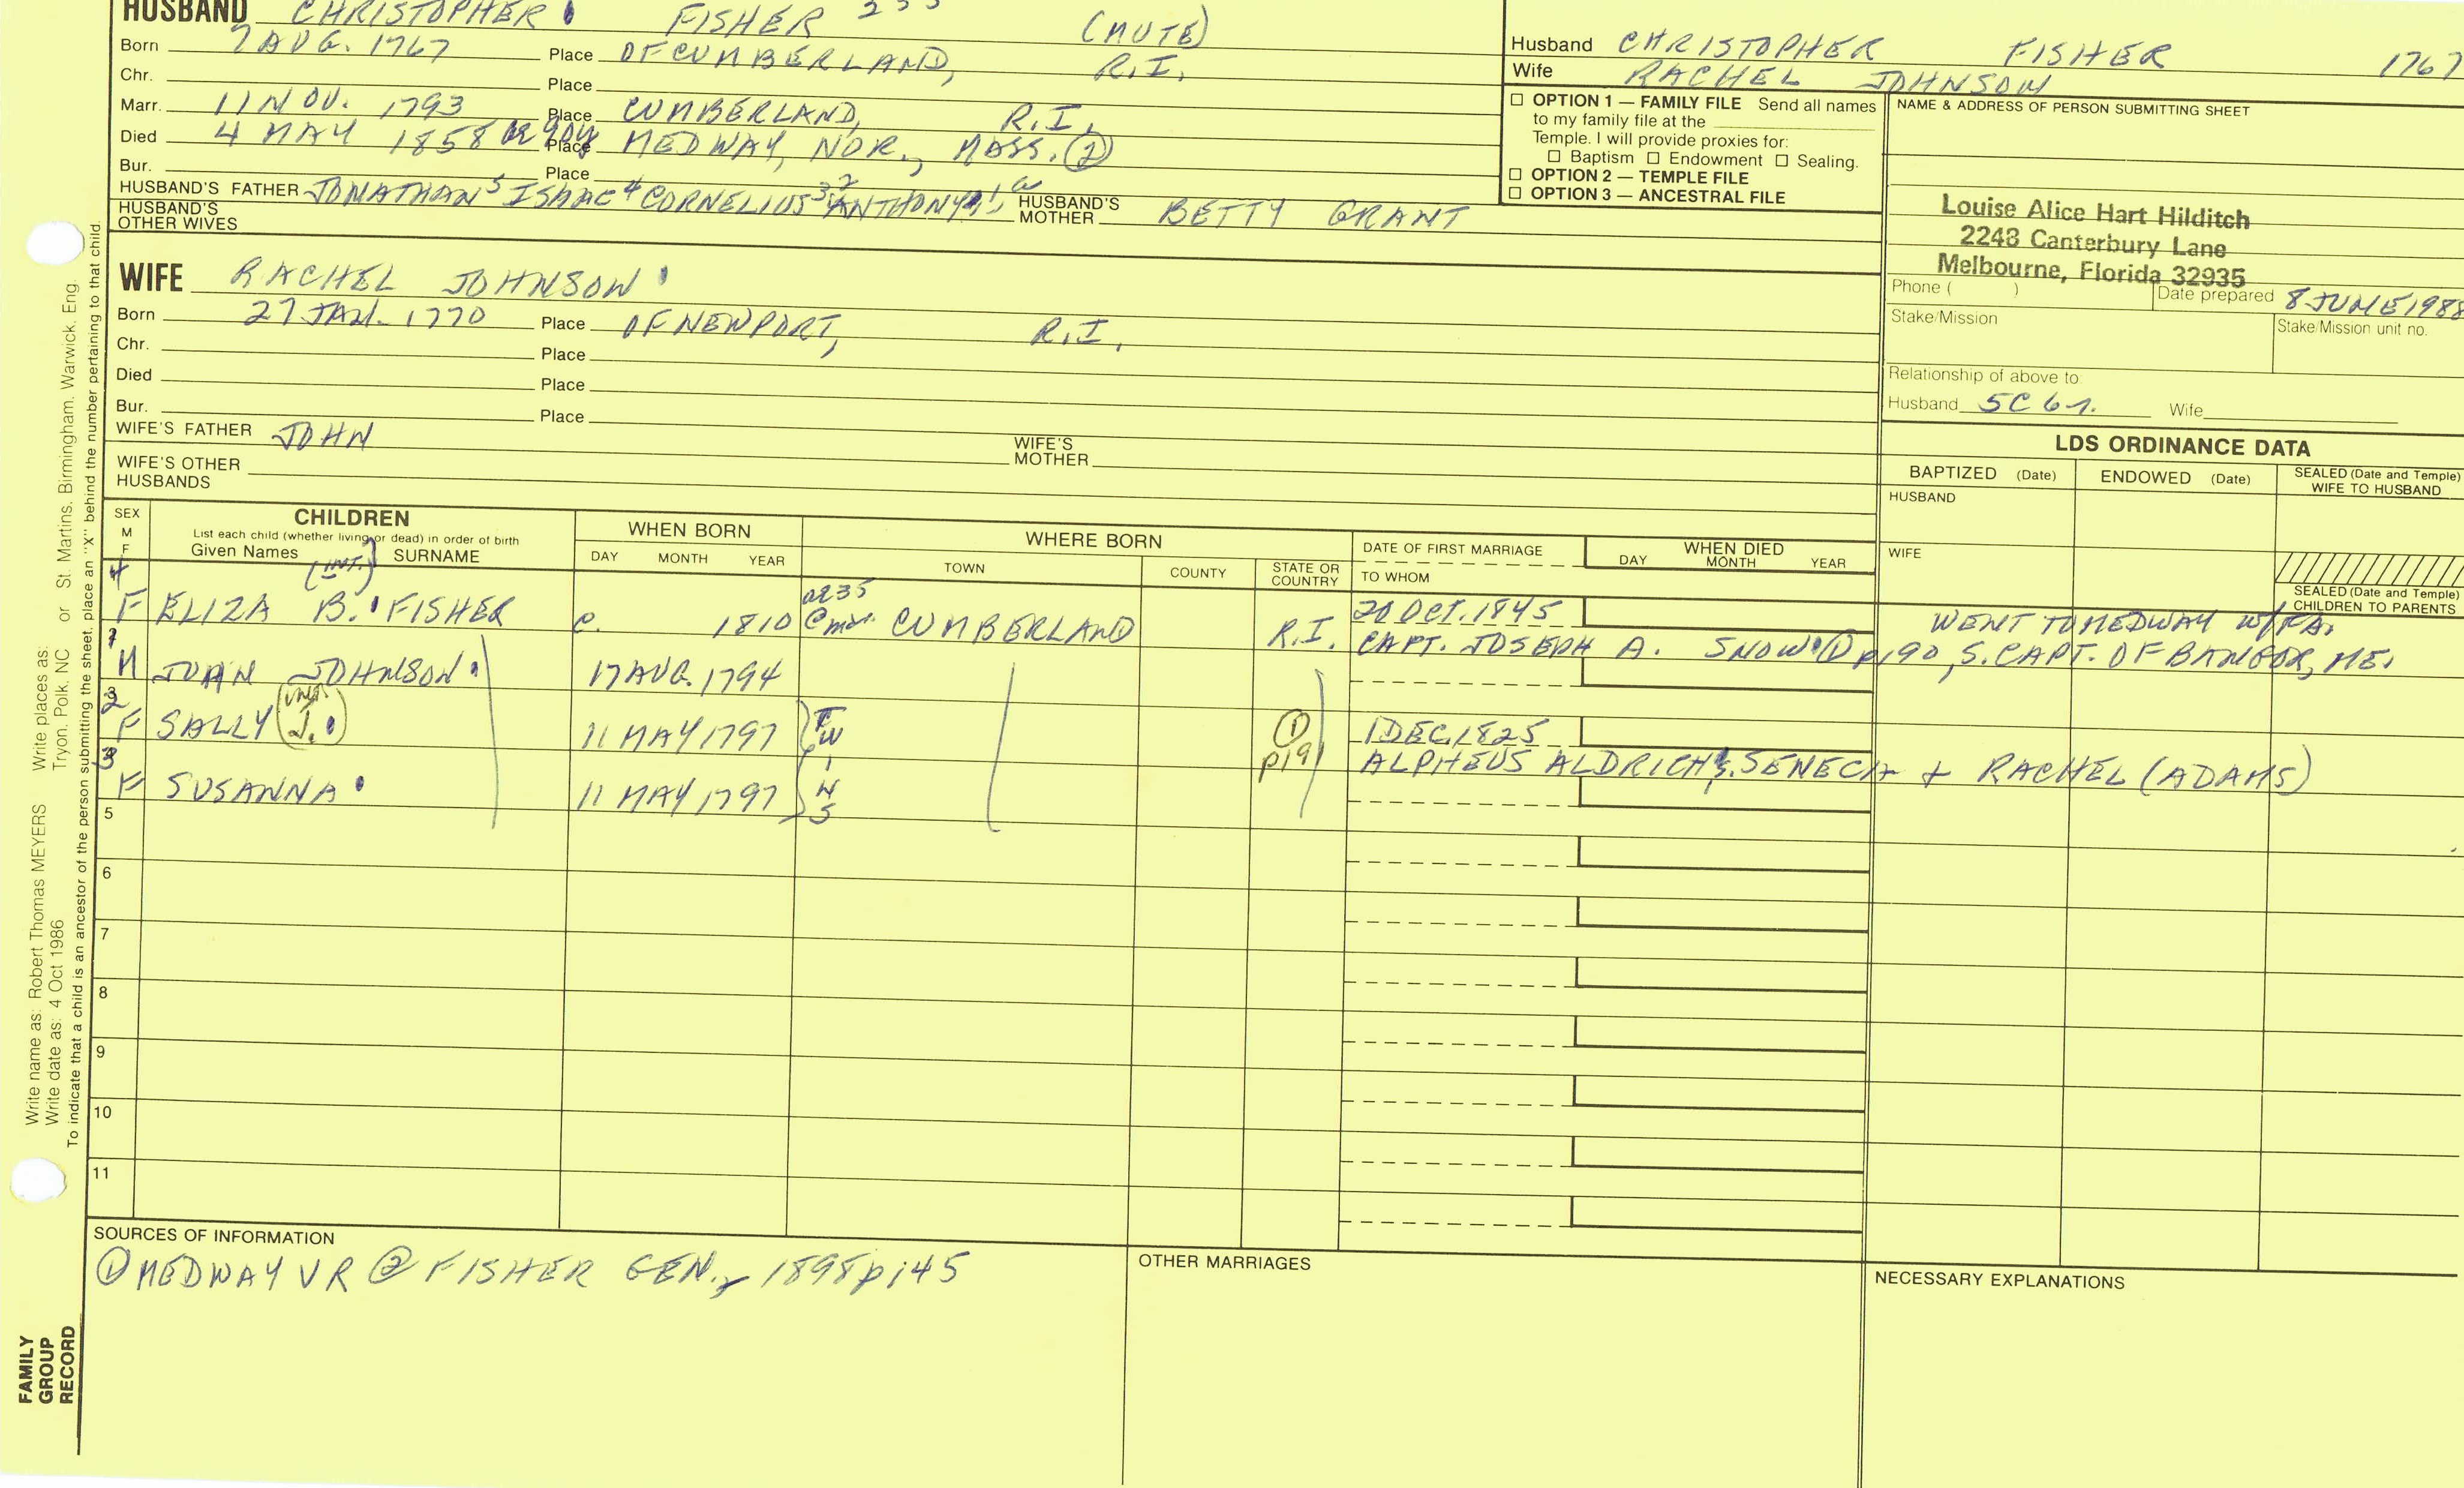 HUSBAND CHRISTOPHER FISHER (MUTE)
Born 7 AUG. 1767 Place OF CUMBERLAND, R.I.
Chr. Place
Marr. 11 NOV. 1793 Place CUMBERLAND, R.I.
Died 4 MAY 1858 Place MEDWAY, NOR., MASS. ②
Bur. Place
HUSBAND'S FATHER JONATHAN⁵ ISAAC⁴ CORNELIUS³ ANTHONY HUSBAND'S MOTHER BETTY GRANT
HUSBAND'S OTHER WIVES
WIFE RACHEL JOHNSON
Born 27 JAN. 1770 Place OF NEWPORT, R.I.
Chr. Place
Died Place
Bur. Place
WIFE'S FATHER JOHN WIFE'S MOTHER
WIFE'S OTHER HUSBANDS
Husband CHRISTOPHER FISHER 1767
Wife RACHEL JOHNSON
☐ OPTION 1 — FAMILY FILE Send all names
to my family file at the
Temple. I will provide proxies for:
☐ Baptism ☐ Endowment ☐ Sealing.
☐ OPTION 2 — TEMPLE FILE
☐ OPTION 3 — ANCESTRAL FILE
NAME & ADDRESS OF PERSON SUBMITTING SHEET
Louise Alice Hart Hilditch
2248 Canterbury Lane
Melbourne, Florida 32935
Phone ( ) Date prepared 8 JUNE 1988
Stake/Mission Stake/Mission unit no.
Relationship of above to:
Husband 5C 6r. Wife
LDS ORDINANCE DATA
BAPTIZED (Date) ENDOWED (Date) SEALED (Date and Temple) WIFE TO HUSBAND
HUSBAND
WIFE
SEALED (Date and Temple) CHILDREN TO PARENTS
SEX M F CHILDREN WHEN BORN WHERE BORN DATE OF FIRST MARRIAGE WHEN DIED
List each child (whether living or dead) in order of birth
Given Names SURNAME DAY MONTH YEAR TOWN COUNTY STATE OR COUNTRY TO WHOM DAY MONTH YEAR
(INT.)
4 F ELIZA B. FISHER c. 1810 a235 @ mar. CUMBERLAND R.I. 20 OCT. 1845 WENT TO MEDWAY W/FA.
CAPT. JOSEPH A. SNOW ① p190, S. CAPT. OF BANGOR, ME.
1 M JOHN JOHNSON 17 AUG. 1794
2 F SALLY (INT. J.) 11 MAY 1797 TWINS ① p191 1 DEC. 1825
ALPHEUS ALDRICH, S. SENECA + RACHEL (ADAMS)
3 F SUSANNA 11 MAY 1797
5
6
7
8
9
10
11
SOURCES OF INFORMATION
① MEDWAY VR ② FISHER GEN., 1898 p145
OTHER MARRIAGES
NECESSARY EXPLANATIONS
FAMILY
GROUP
RECORD
Write name as: Robert Thomas MEYERS Write places as: St. Martins, Birmingham, Warwick, Eng.
Write date as: 4 Oct 1986 Tryon, Polk, NC or
To indicate that a child is an ancestor of the person submitting the sheet, place an "X" behind the number pertaining to that child.